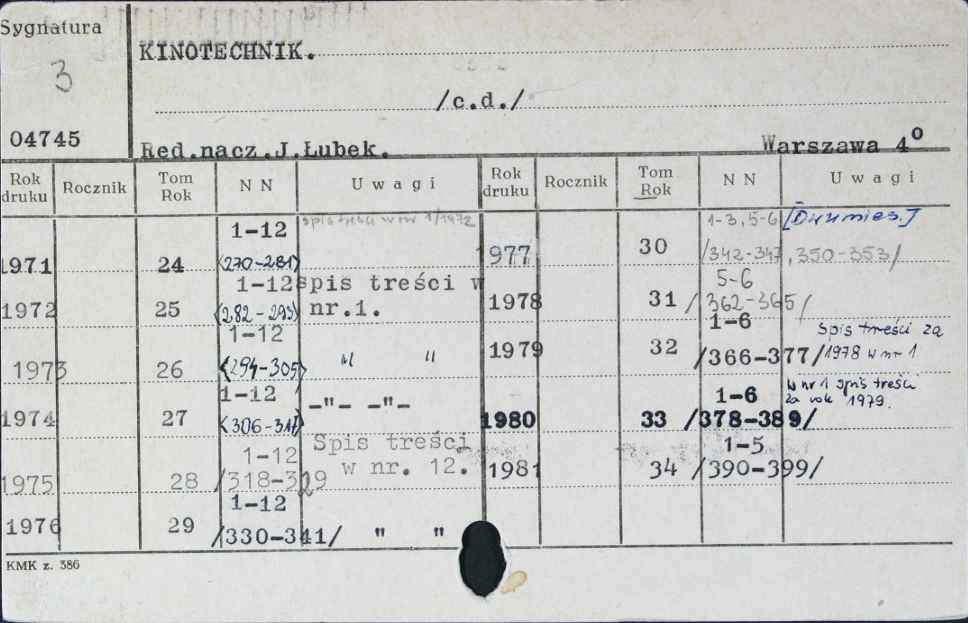 Sygnatura
3
04745
KINOTECHNIK.
/c.d./
Red.nacz.J.Łubek. Warszawa 4°
Rok druku Rocznik Tom Rok N N Uwagi Rok druku Rocznik Tom Rok N N Uwagi
1971 24 1-12 (270-281) spis treści w nr 1/1972
1972 25 1-12 (282-293) spis treści w nr.1.
1973 26 1-12 (294-305) " "
1974 27 1-12 (306-317) -"- -"-
1975 28 1-12 /318-329 Spis treści w nr. 12.
1976 29 1-12 /330-341/ " "
1977 30 1-3, 5-6 [Dwumies.] /342-347, 350-353/
1978 31 5-6 /362-365/
1979 32 1-6 /366-377/ Spis treści za 1978 w nr 1
1980 33 1-6 /378-389/ w nr 1 spis treści za rok 1979.
1981 34 1-5 /390-399/
KMK z. 386